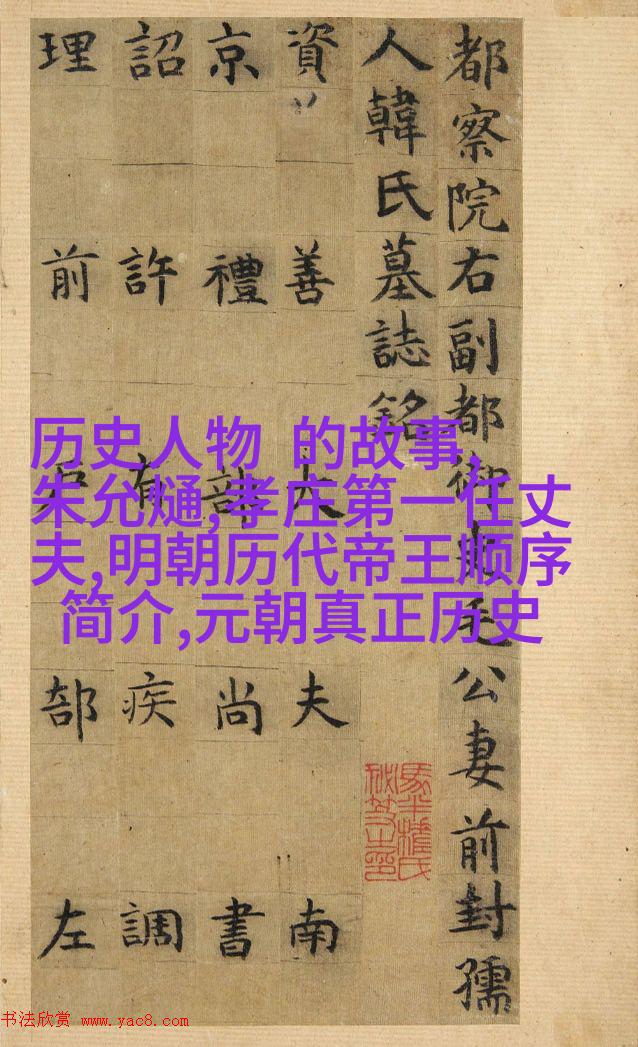 都察院右副都御史毛公妻前封孺
人韓氏墓誌銘
資善大夫南
京禮部尚書
詔許疾調
理前部左
历史人物 的故事,
朱允熥,孝庄第一任丈
夫,明朝历代帝王顺序
简介,元朝真正历史
书法欣赏 www.yac8.com